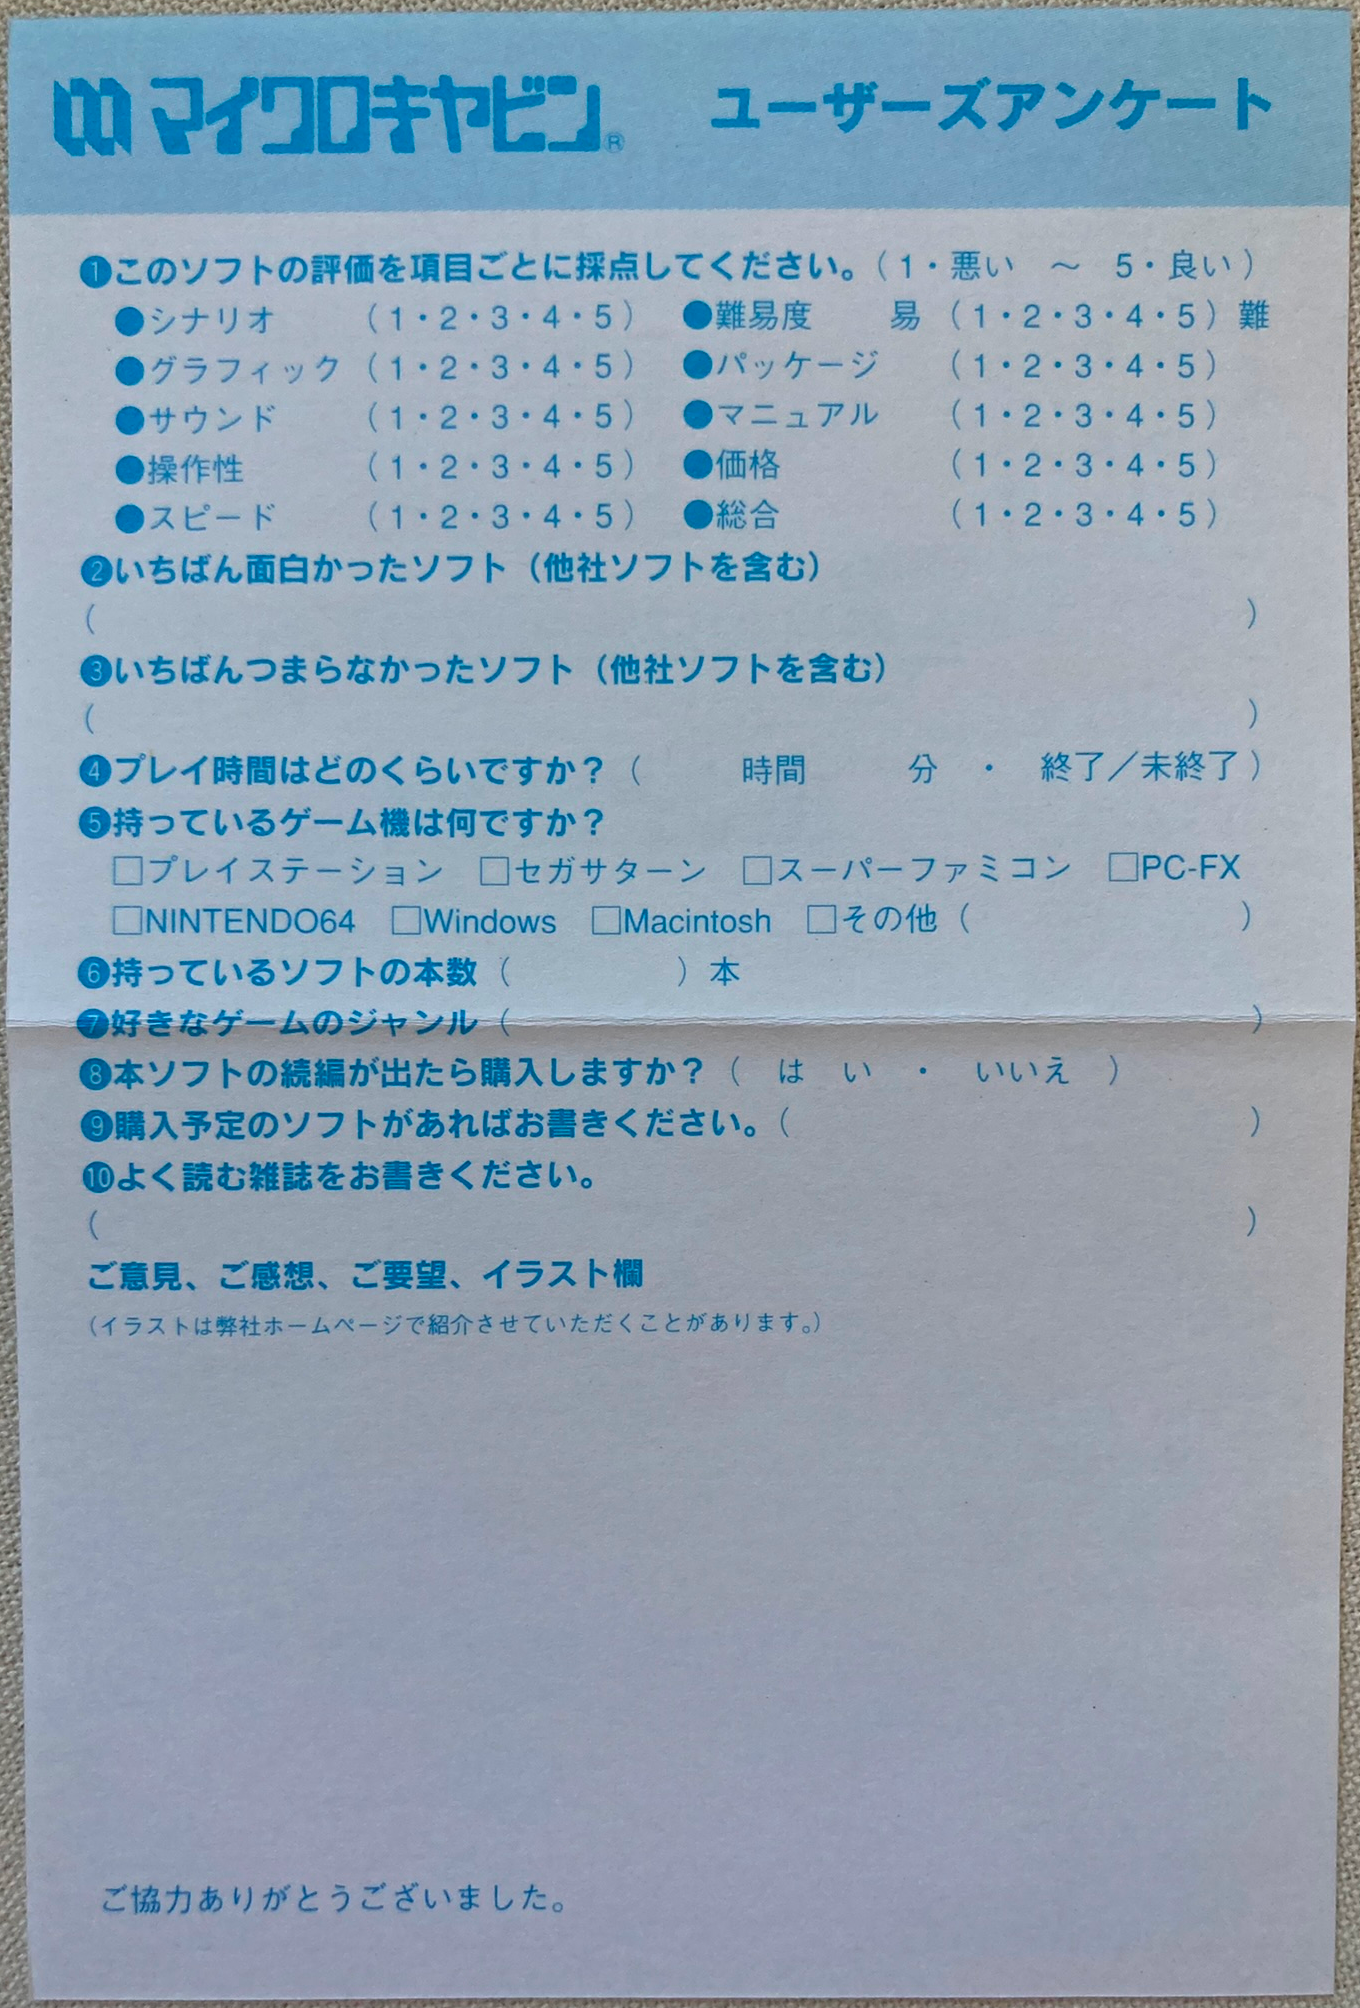 マイクロキャビン® ユーザーズアンケート
❶このソフトの評価を項目ごとに採点してください。（1・悪い　～　5・良い）
●シナリオ　（1・2・3・4・5）　●難易度　易（1・2・3・4・5）難
●グラフィック（1・2・3・4・5）　●パッケージ　（1・2・3・4・5）
●サウンド　（1・2・3・4・5）　●マニュアル　（1・2・3・4・5）
●操作性　（1・2・3・4・5）　●価格　（1・2・3・4・5）
●スピード　（1・2・3・4・5）　●総合　（1・2・3・4・5）
❷いちばん面白かったソフト（他社ソフトを含む）
（　）
❸いちばんつまらなかったソフト（他社ソフトを含む）
（　）
❹プレイ時間はどのくらいですか？（　時間　分　・　終了／未終了）
❺持っているゲーム機は何ですか？
□プレイステーション　□セガサターン　□スーパーファミコン　□PC-FX
□NINTENDO64　□Windows　□Macintosh　□その他（　）
❻持っているソフトの本数（　）本
❼好きなゲームのジャンル（　）
❽本ソフトの続編が出たら購入しますか？（　は　い　・　いいえ　）
❾購入予定のソフトがあればお書きください。（　）
❿よく読む雑誌をお書きください。
（　）
ご意見、ご感想、ご要望、イラスト欄
（イラストは弊社ホームページで紹介させていただくことがあります。）
ご協力ありがとうございました。